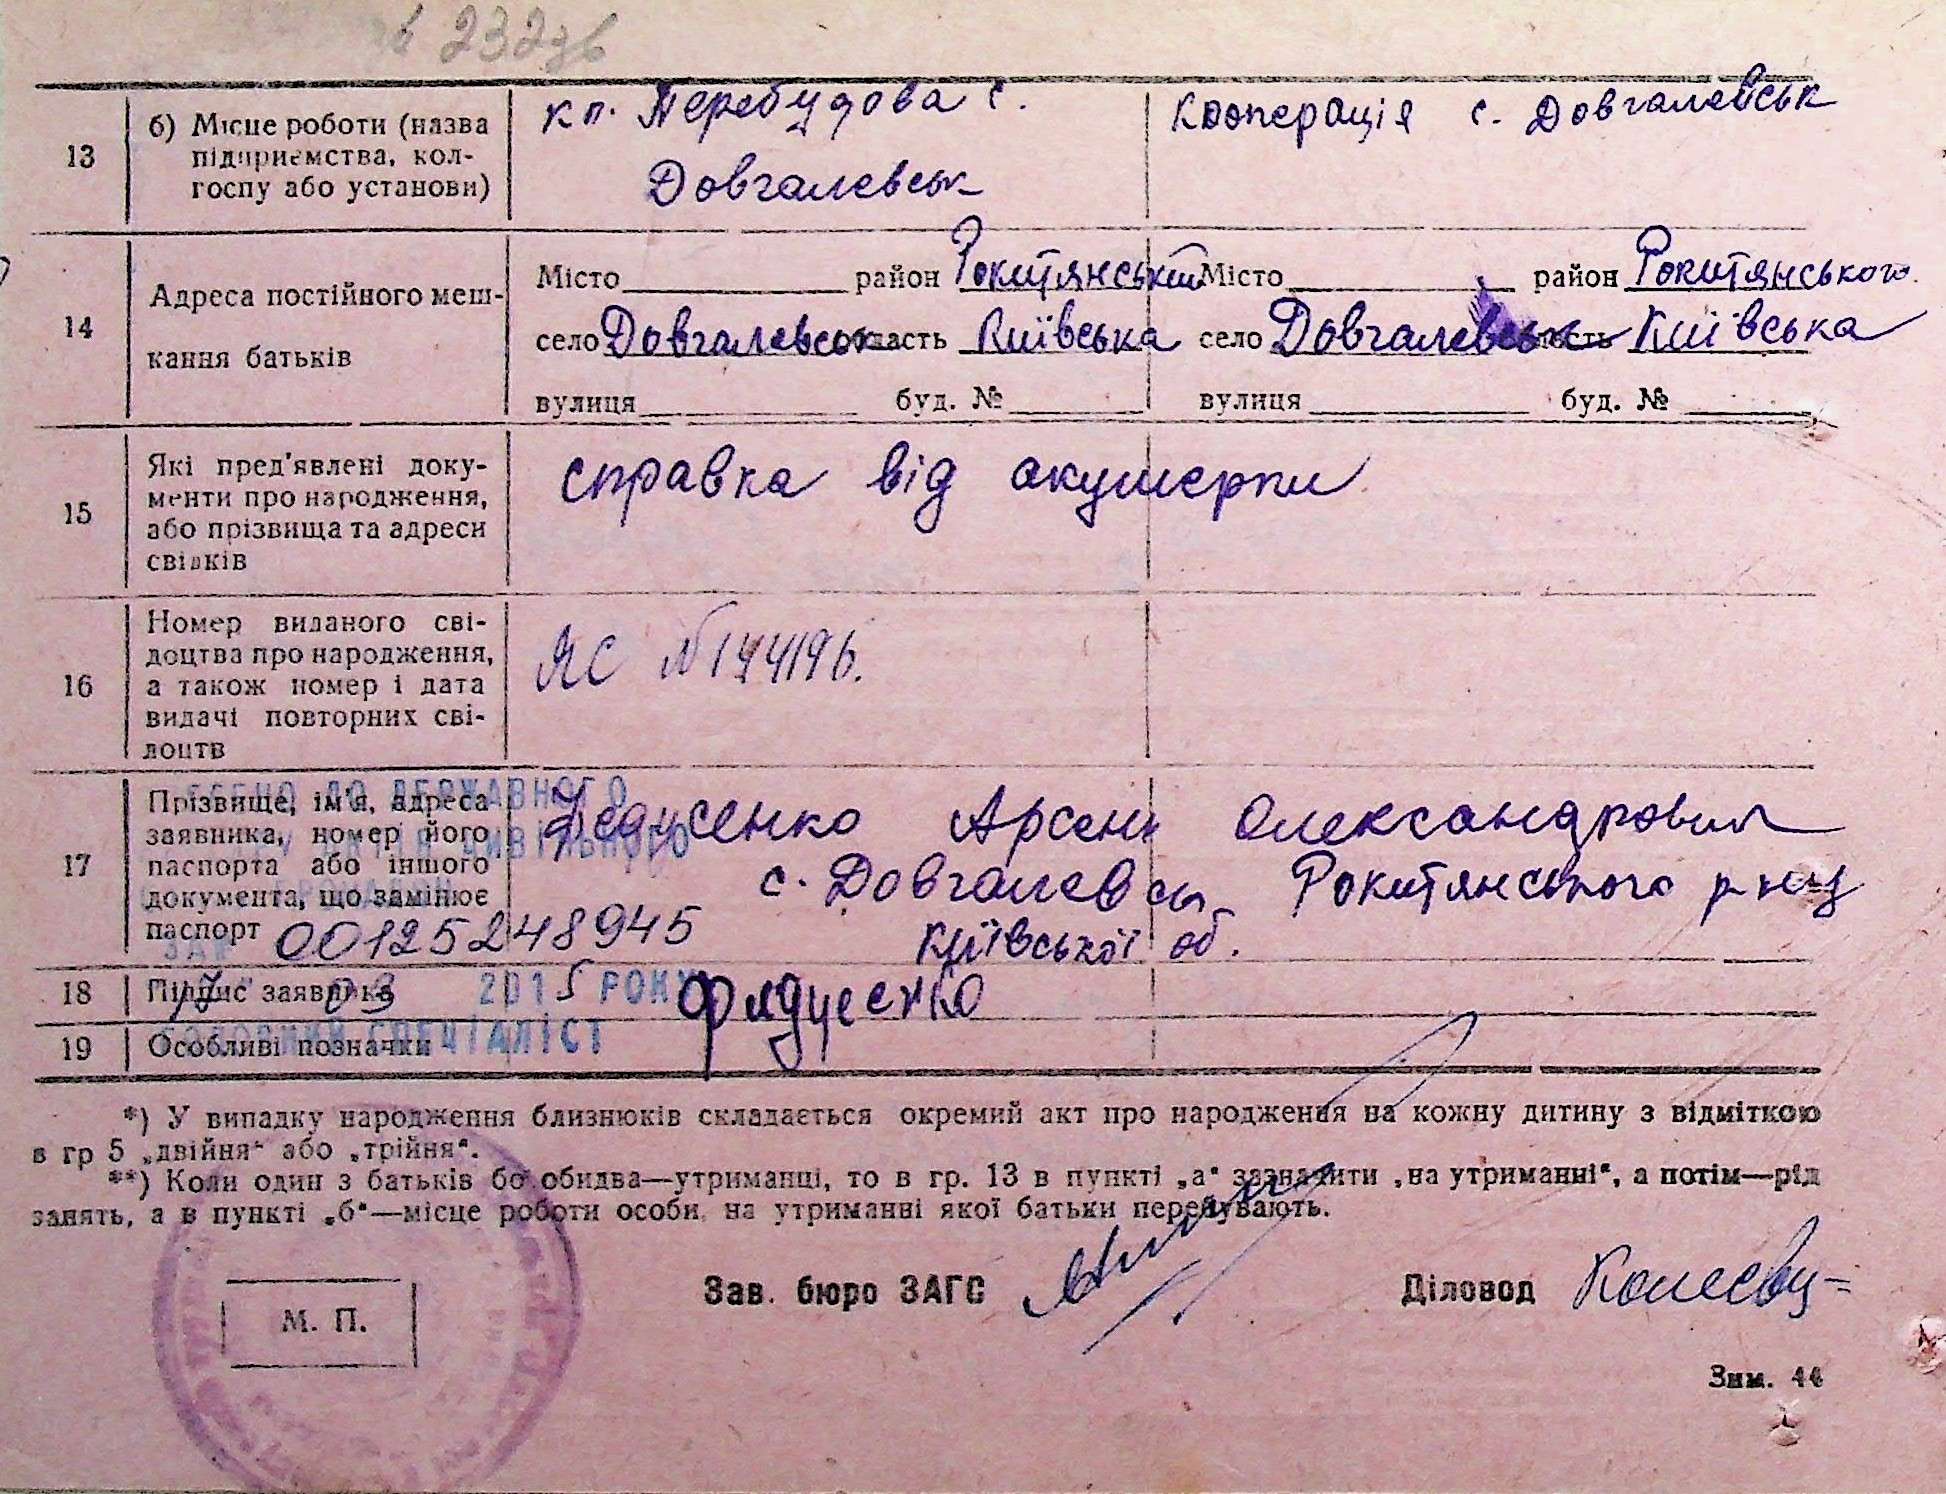 2323в
13
б) Місце роботи (назва
підприємства, кол-
госпу або установи)
кл. Перебудова с.
Довгалевськ
Кооперація с. Довгалевськ
14
Адреса постійного меш-
кання батьків
Місто район Рокитянський
село Довгалевськ область Київська
вулиця буд. №
Місто район Рокитянського
село Довгалевськ область Київська
вулиця буд. №
15
Які пред'явлені доку-
менти про народження,
або прізвища та адреси
свідків
справка від акушерки
16
Номер виданого сві-
доцтва про народження,
а також номер і дата
видачі повторних сві-
доцтв
ЯС №
17
Прізвище, ім'я, адреса
заявника, номер його
паспорта або іншого
документа, що замінює
паспорт
Федусенко Арсен Олександрович
с. Довгалевськ Рокитянського р-ну
Київської об.
ДО ДЕРЖАВНОГО
АКТІВ ЦИВІЛЬНОГО
00125248945
17 03 2015 РОКУ
ГОЛОВНИЙ СПЕЦІАЛІСТ
18
Підпис заявника
19
Особливі позначки
*) У випадку народження близнюків складається окремий акт про народження на кожну дитину з відміткою
в гр 5 „двійня“ або „трійня“.
**) Коли один з батьків бо обидва—утриманці, то в гр. 13 в пункті „а“ зазначити „на утриманні“, а потім—рід
занять, а в пункті „б“—місце роботи особи, на утриманні якої батьки перебувають.
М. П.
Зав. бюро ЗАГС
Діловод
Зим. 44